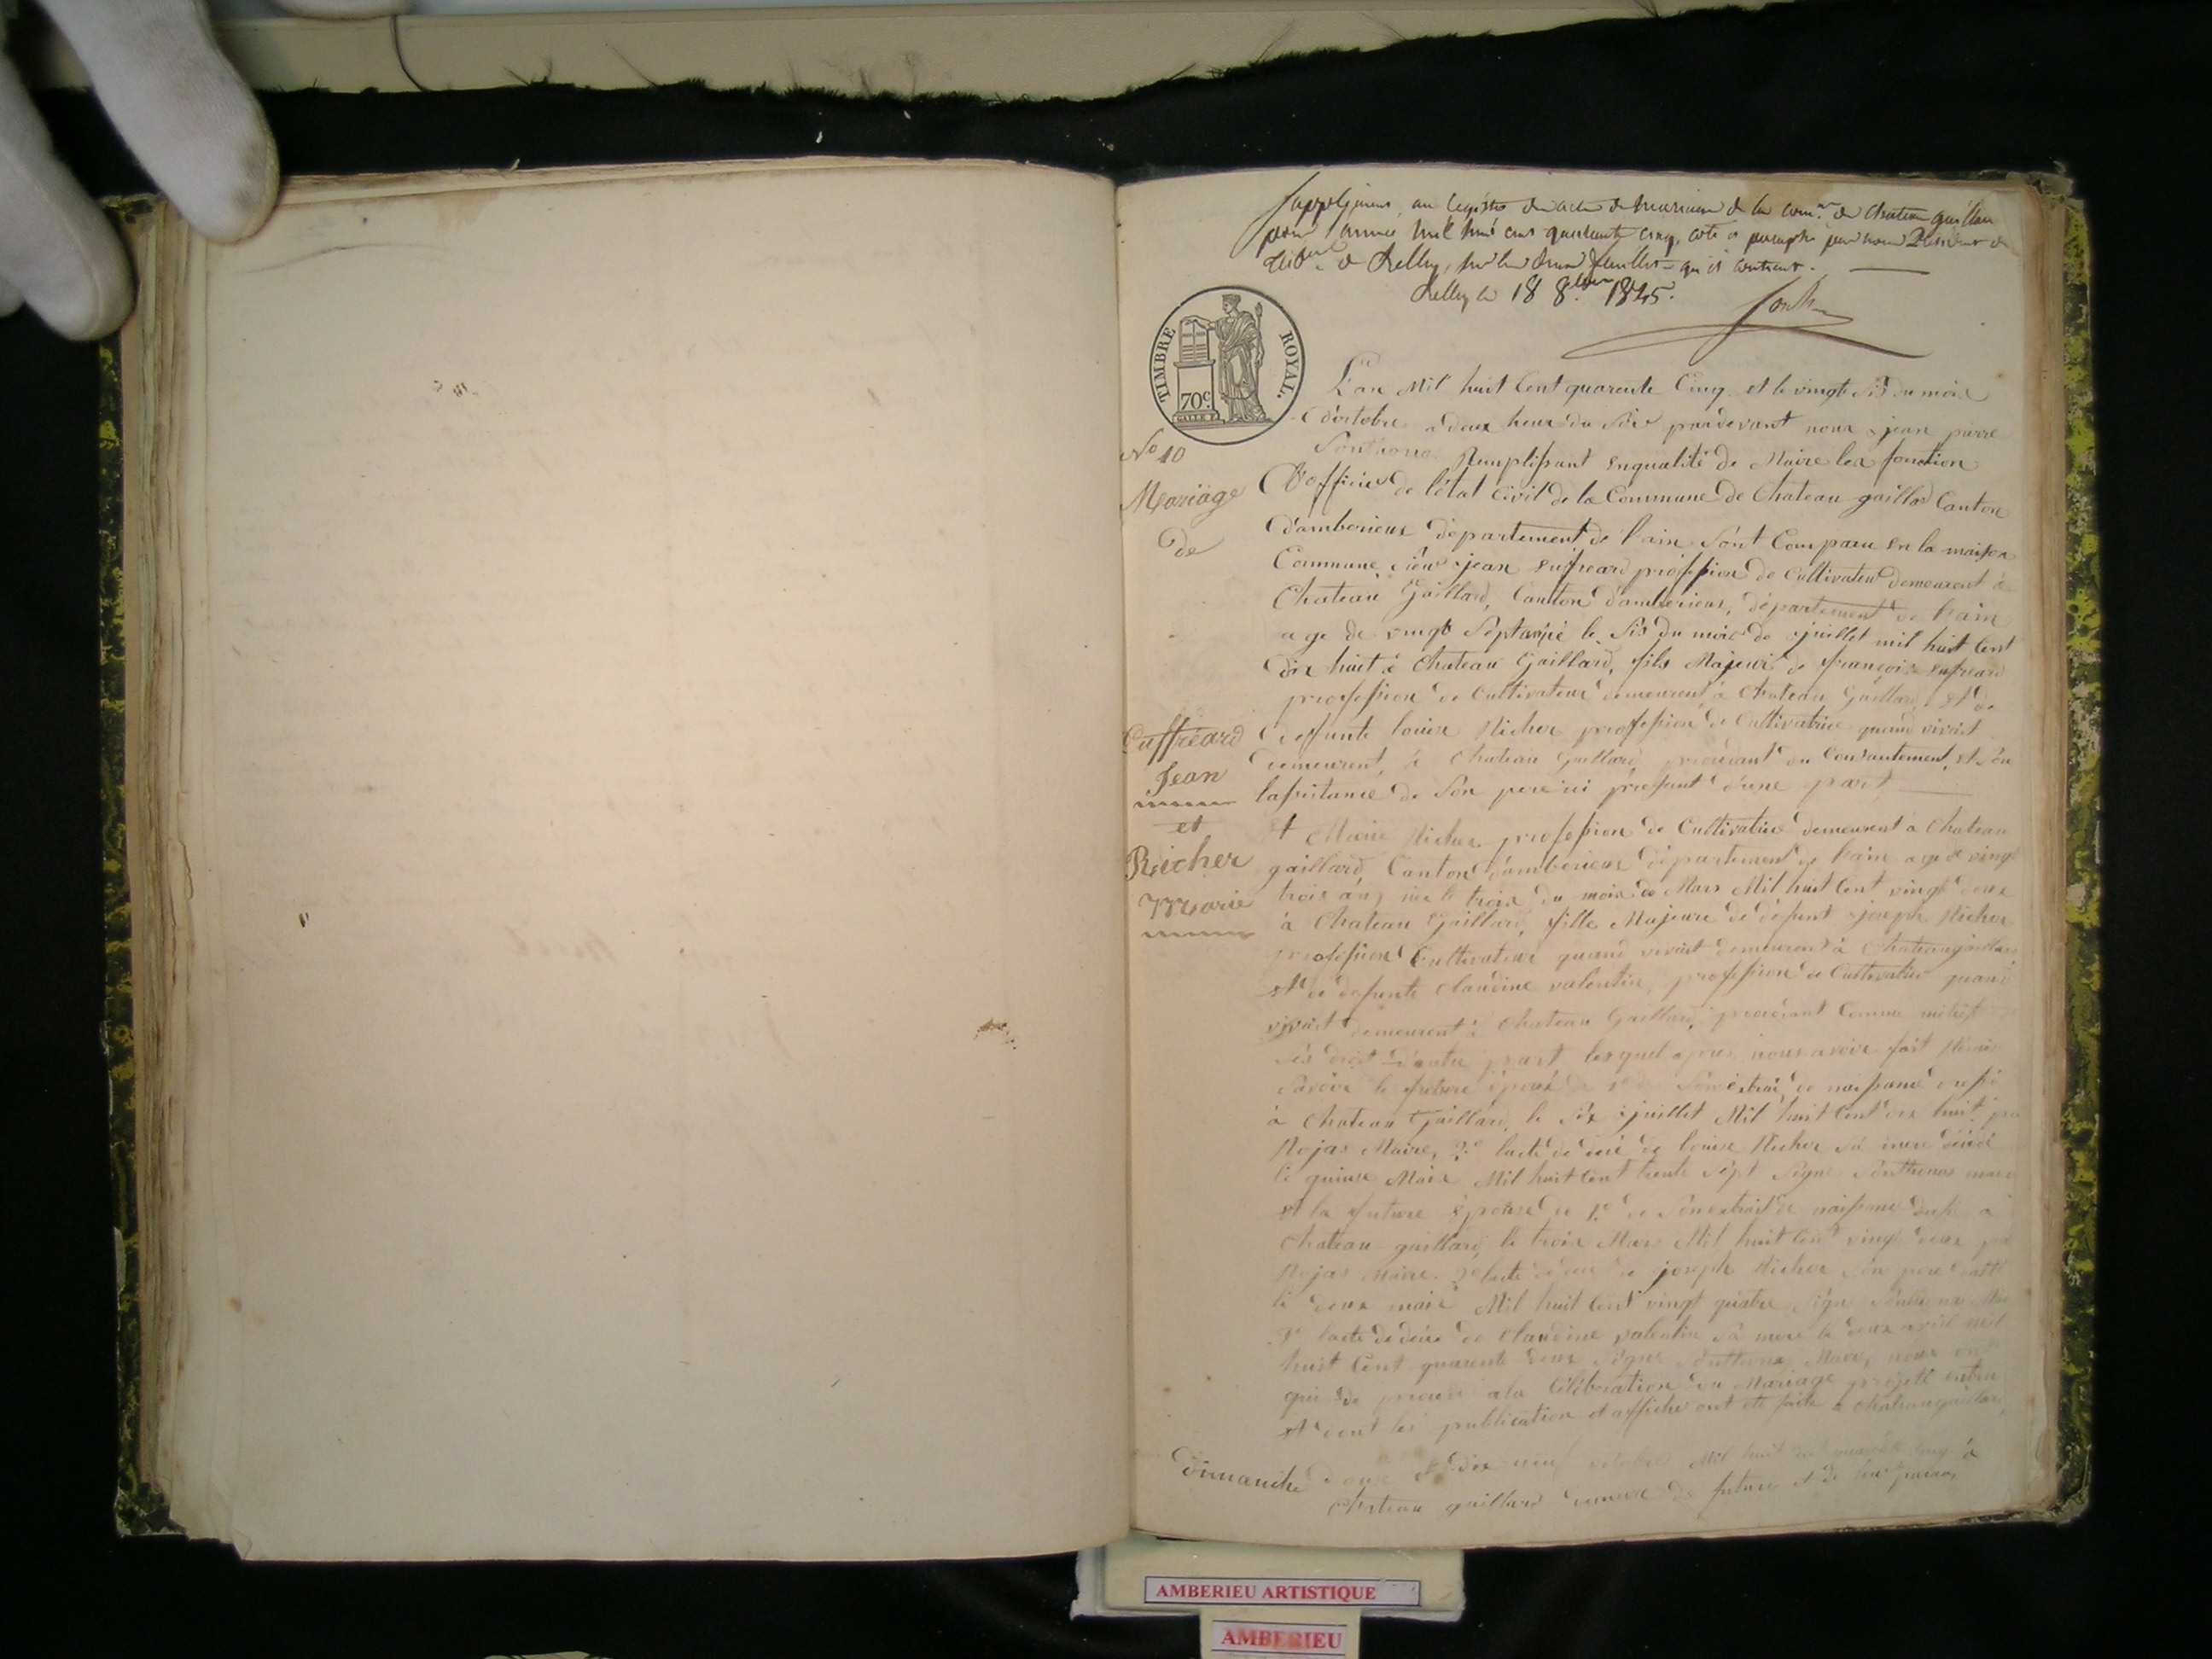 Supplément au registre des actes de mariage de la com.ne de Chateau gaillard
pour l'année mil huit cent quarante cinq, coté et paraphé par nous Président du
Trib.nal de Belley, sur les deux feuillets qu'il contient.
Belley le 18 8.bre 1845.
TIMBRE ROYAL.
70c.
L'an Mil huit Cent quarente Cinq et le vingt sis du mois
d'octobre a deux heure du Soir pardevant nous jean pierre
Remplissant enqualité de Maire les fonction
D'officier de l'état Civil de la Commune de Chateau gaillard Canton
d'amberieux département de l'ain Sont Comparu en la maison
Commune sieur jean Cufreard profession de Cultivateur demeurent à
Chateau Gaillard, Canton d'amberieux, département de l'ain
age de vingt Sept ans né le Sis du mois de juillet mil huit Cent
dix huit à Chateau Gaillard, fils Majeur de françois Cufreard
profession de Cultivateur demeurent à Chateau Gaillard, et de
deffunte louise Richer profession de Cultivatrice quand vivait
demeurent, à Chateau Gaillard, procedant du Consantement, et d'en
lassistance de Son pere ici present d'une part
No 10
Mariage
de
Cuffréard
Jean
et
Richer
Marie
et Marie Richer profession de Cultivatrice demeurent a Chateau
gaillard, Canton d'amberieux département de l'ain age de vingt
trois ans née le trois du mois de Mars Mil huit Cent vingt deux
à Chateau Gaillard, fille Majeure de defunt joseph Richer
profession Cultivateur quand vivait demeurent à Chateaugaillard
et de defunte Claudine valentin, profession de Cultivatrice quand
vivait demeurent à Chateau Gaillard, procedant Comme
Ses droit d'autre part lesquel apres nous avoir fait
Savoir le future époux de 1.o de Son extrait de naissance dressé
à Chateau Gaillard, le Six juillet Mil huit Cent dix huit
Rojas Maire, 2.o lacte de décé de louise Richer Sa mere décédé
le quinze Mai Mil huit Cent trente Sept Signé
et la future épouse de 1.o de Son extrait de naissance dressé a
Chateau gaillard, le trois Mars Mil huit Cent vingt deux
Rojas Maire. 2.o lacte de décé de joseph Richer Son pere
le deux mai Mil huit Cent vingt quatre Signé
3.o lacte de décé de Claudine valentin Sa mere le deux avril mil
huit Cent quarente deux Signé Maire, nous ont
qui de procede a la Célébration du Mariage projeté entre
et dont les publication et affiche ont été faite a Chateaugaillard,
dimanche douze et dix neuf octobre Mil huit cent quarente Cinq à
Chateau gaillard future et de
AMBERIEU ARTISTIQUE
AMBERIEU